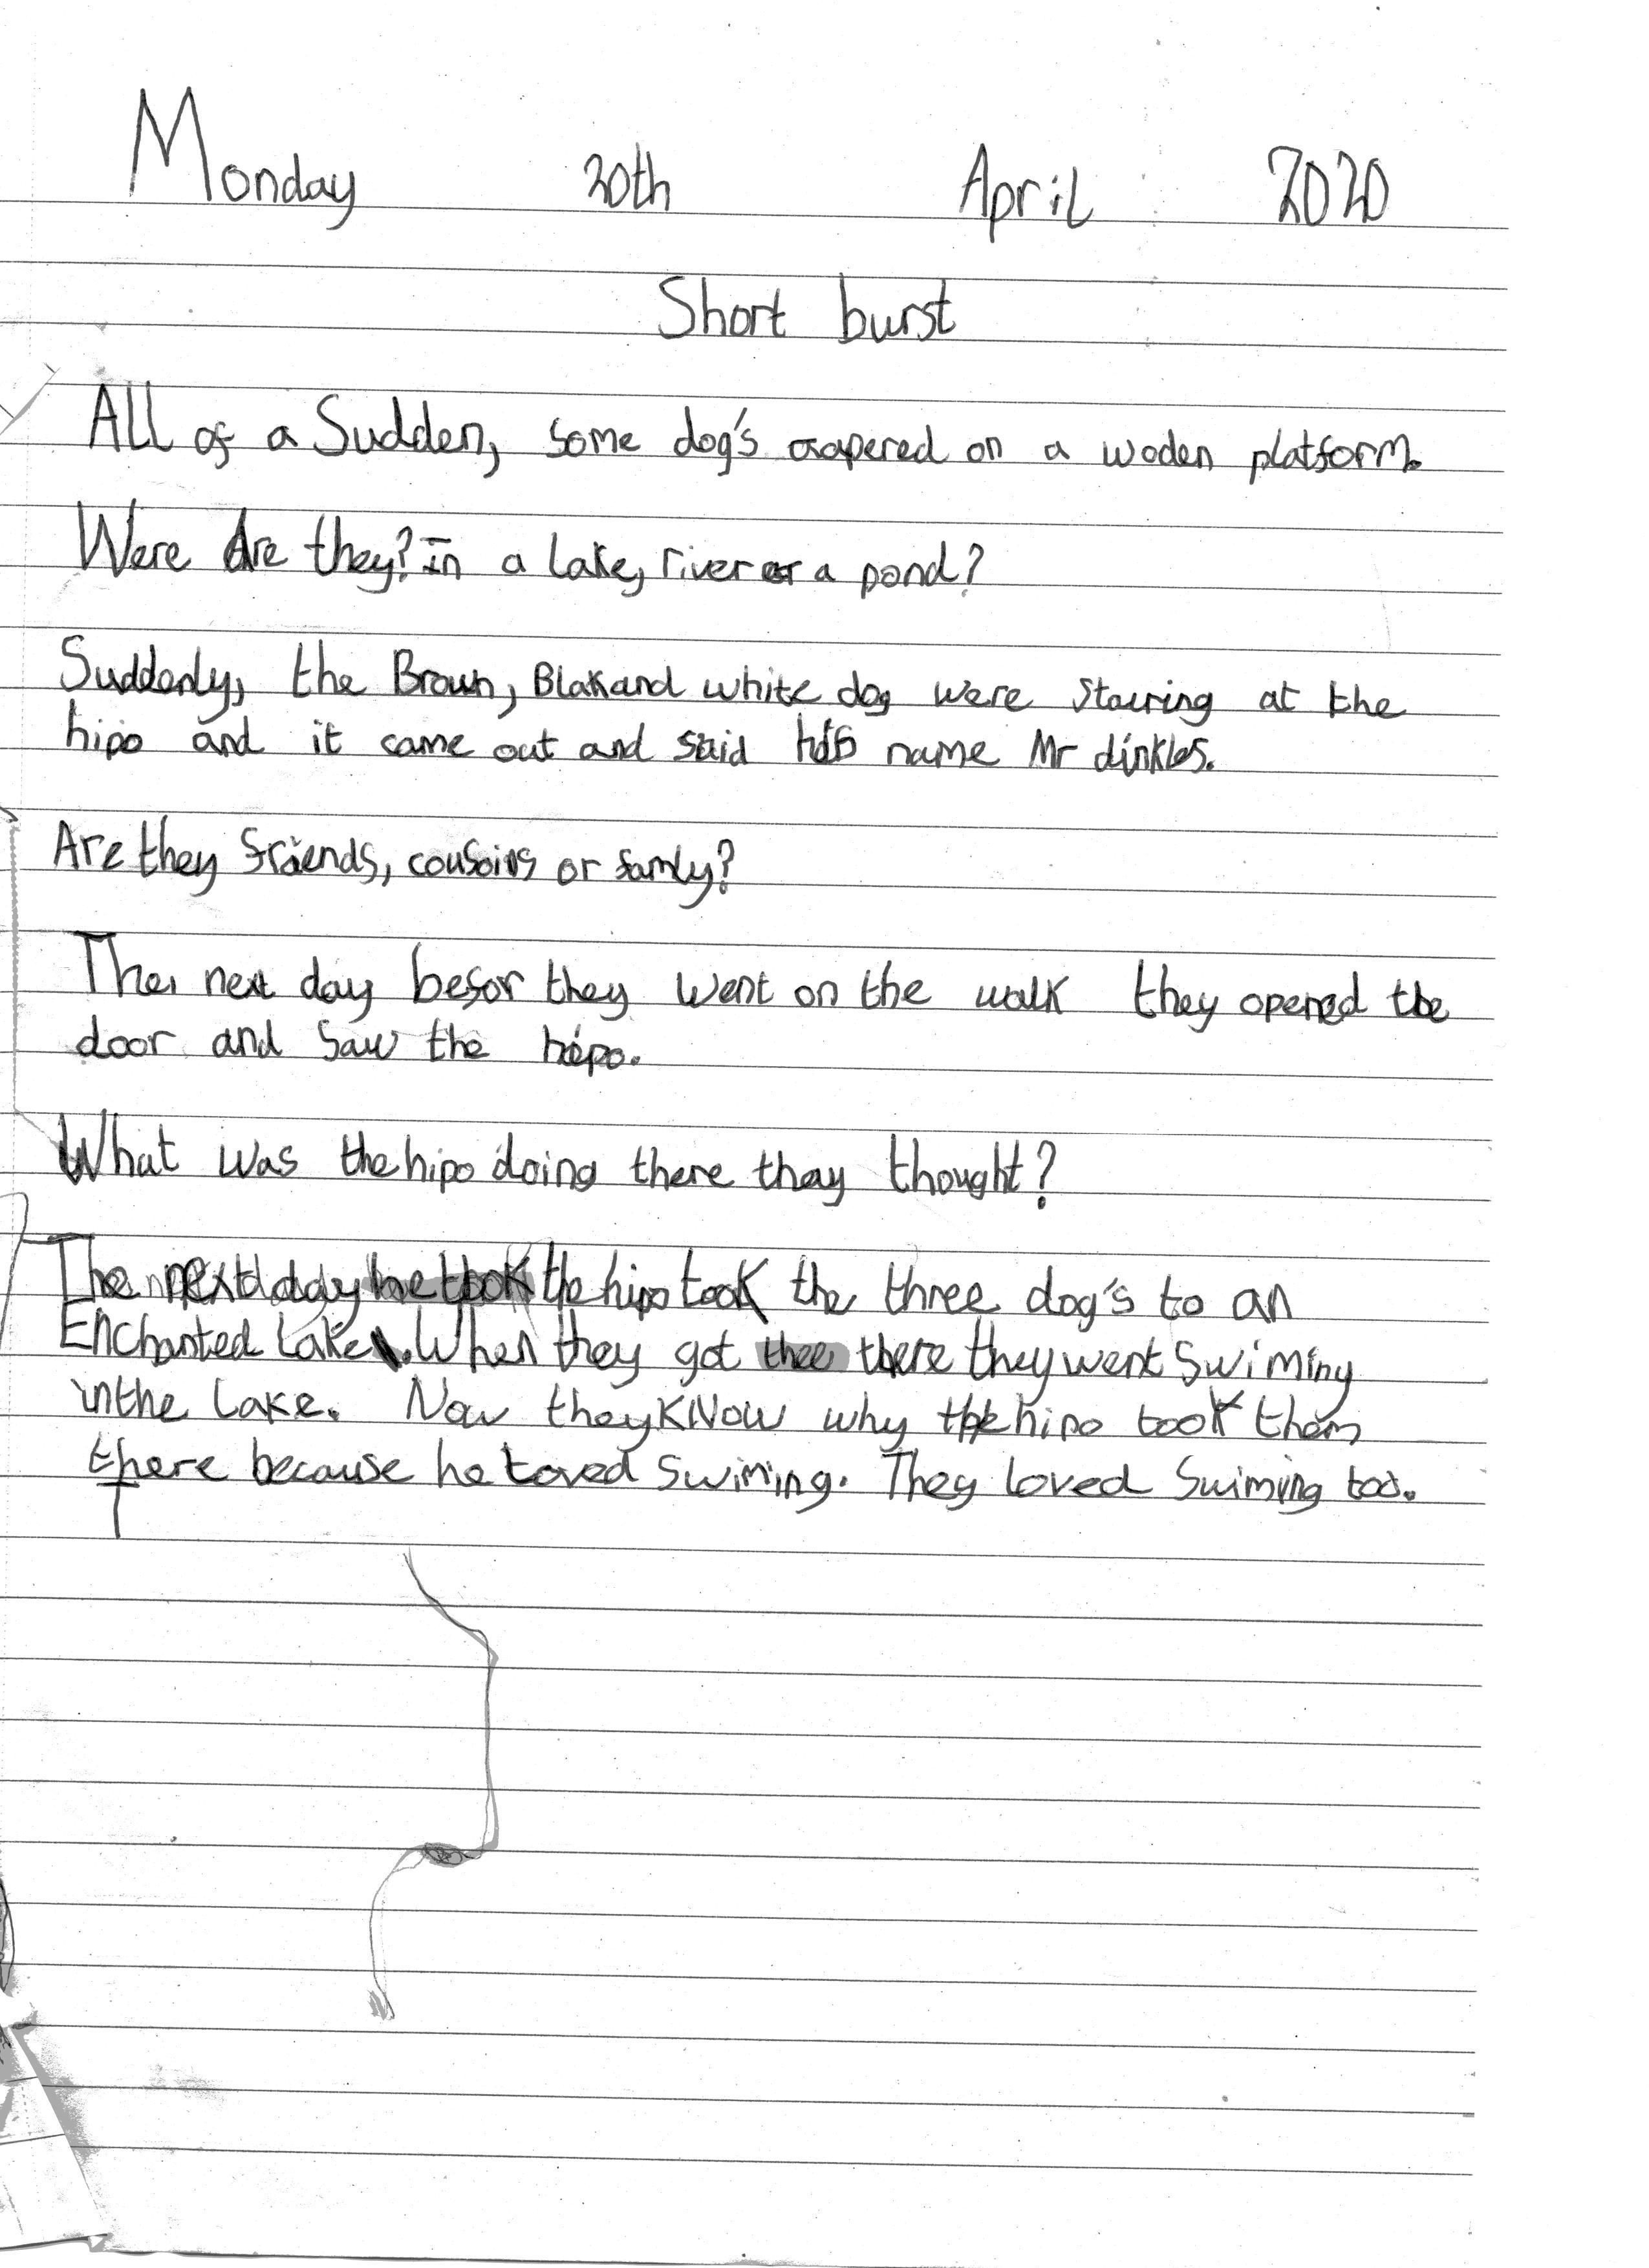 Monday 20th April 2020
Short burst
All of a Sudden, some dog's apered on a woden platform.
Were Are they? In a Lake, river or a pond?
Suddenly, the Brown, Blak and white dog were staring at the
hipo and it came out and said his name Mr dinkles.
Are they friends, cousoins or famly?
The next day befor they went on the walk they opened the
door and saw the hipo.
What was the hipo doing there thay thought?
The next day the hipo took the three dog's to an
Enchanted Lake. When they got there they went swiming
in the Lake. Now they KNow why the hipo took them
there because he Loved swiming. They loved swiming too.